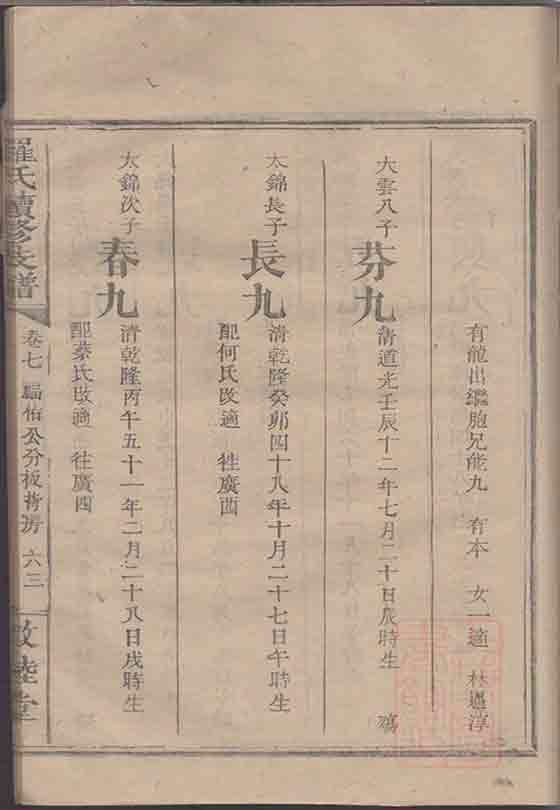 有龍出繼胞兄能九 有本 女一適 林邁淳
大雲八子
芬九
清道光壬辰十二年七月二十日辰時生 殤
太錦長子
長九
清乾隆癸卯四十八年十月二十七日午時生
配何氏改適 往廣西
太錦次子
春九
清乾隆丙午五十一年二月二十八日戌時生
配蔡氏改適 往廣西
羅氏續修支譜
卷七 福佑公分板背房 六三
敦睦堂